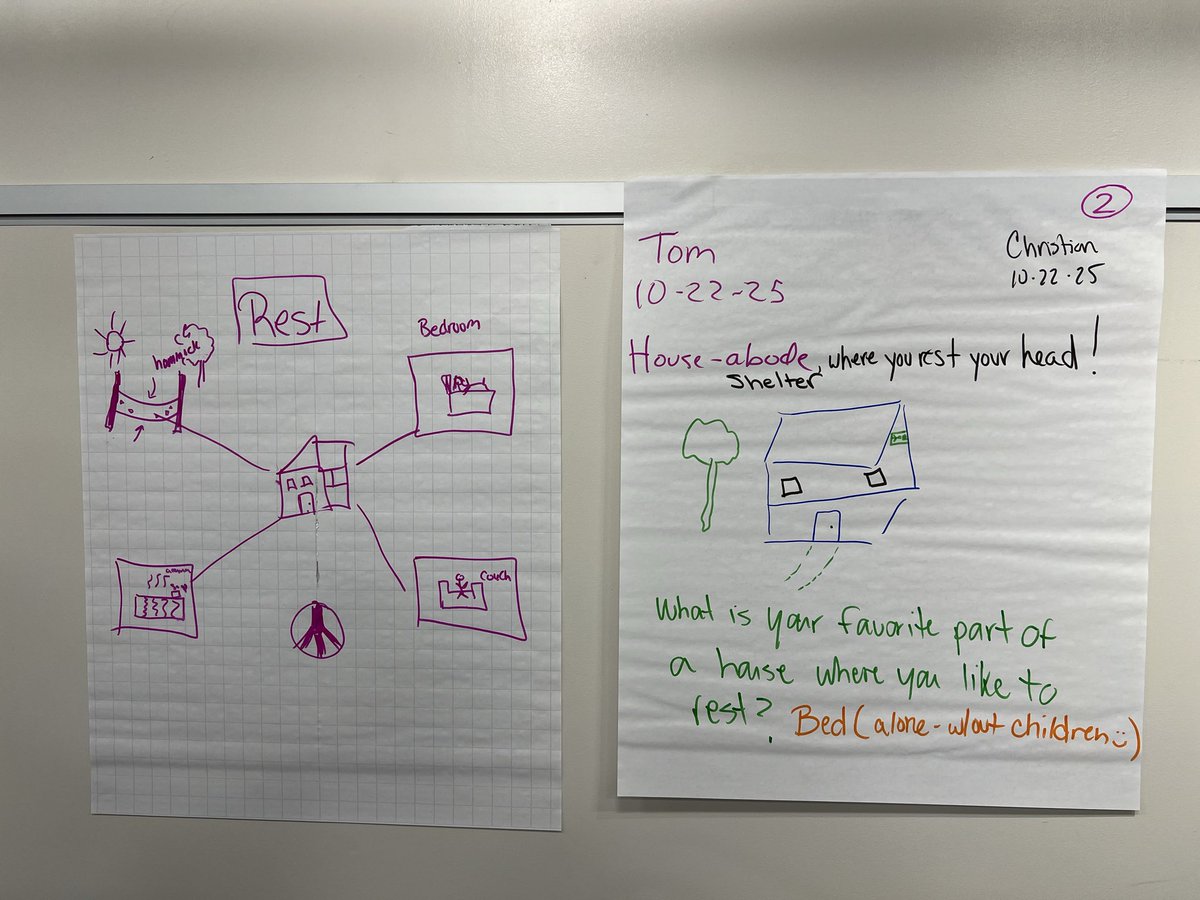 Rest
hammick
Bedroom
couch
2
Tom
10-22-25
Christian
10.22.25
House-abode, where you rest your head!
Shelter
What is your favorite part of
a house where you like to
rest?
Bed (alone-w/out children :)